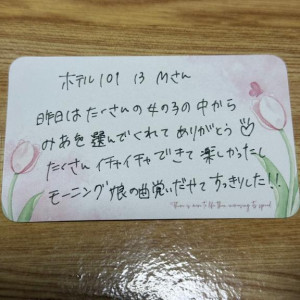 ホテル 101 13 Mさん
昨日はたくさんの女の子の中から
みあを選んでくれてありがとう♡
たくさんイチャイチャできて楽しかったし
モーニング娘の曲覚いだせてすっきりした!!
"There is more to life than increasing its speed